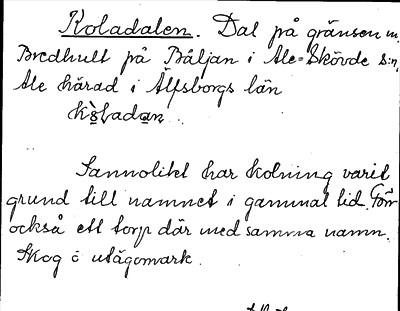 Koladalen. Dal på gränsen m.
Bredhult på Båljan i Ale-Skövde s:n,
Ale härad i Älfsborgs län
Sannolikt har kolning varit
grund till namnet i gammal tid. Förr
också ett torp där med samma namn.
Skog o utägomark.